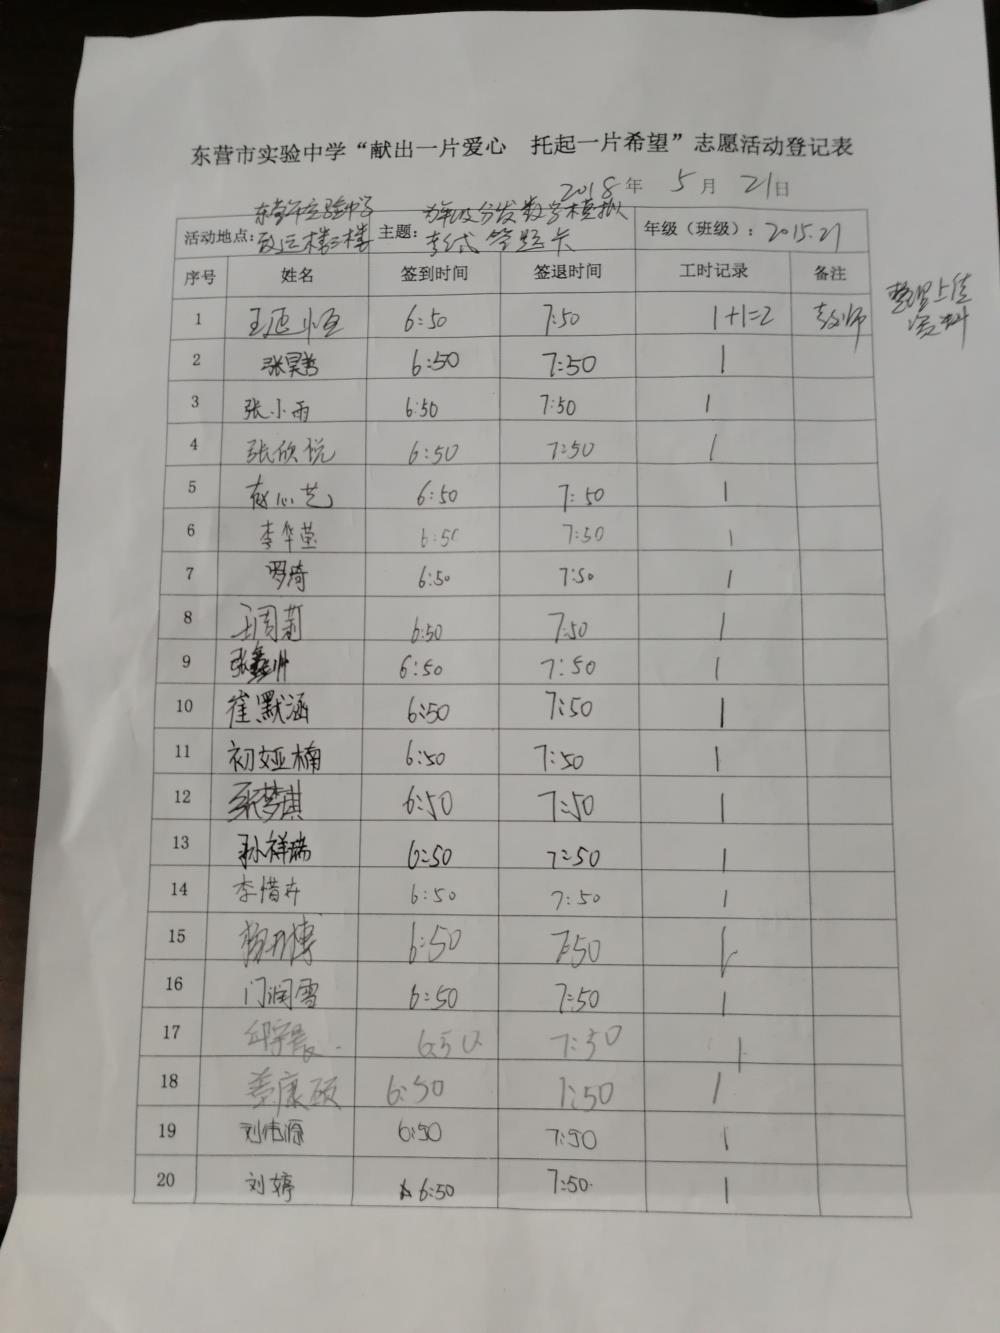 东营市实验中学“献出一片爱心 托起一片希望”志愿活动登记表
2018年 5月 21日
活动地点: 东营市实验中学致远楼三楼 主题: 年级分发数学模拟考试答题卡 年级（班级）: 2015.21
序号 姓名 签到时间 签退时间 工时记录 备注
1 6:50 7:50 1+1=2 教师 整理上传资料
2 张昊 6:50 7:50 1
3 张小雨 6:50 7:50 1
4 张欣悦 6:50 7:50 1
5 心艺 6:50 7:50 1
6 李华莹 6:50 7:50 1
7 罗琦 6:50 7:50 1
8 王周莉 6:50 7:50 1
9 张鑫 6:50 7:50 1
10 崔默涵 6:50 7:50 1
11 初娅楠 6:50 7:50 1
12 梦琪 6:50 7:50 1
13 孙祥瑞 6:50 7:50 1
14 李惜卉 6:50 7:50 1
15 杨 博 6:50 7:50 1
16 门润雪 6:50 7:50 1
17 邱宇晨 6:50 7:50 1
18 盖康硕 6:50 7:50 1
19 刘伟源 6:50 7:50 1
20 刘婷 6:50 7:50 1